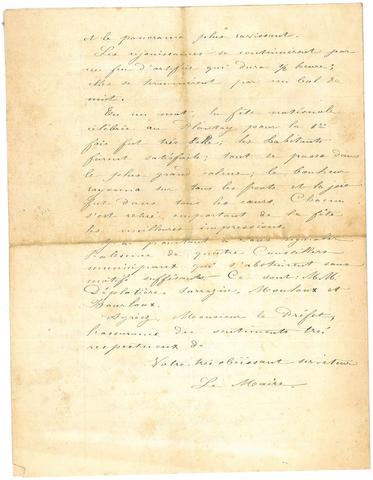 et le panorama plus ravissant.
Les réjouissances se continuèrent par
un feu d'artifice qui dura ½ heure;
elles se terminèrent par un bal de
nuit.
En un mot, la fête nationale
célébrée au Plantay pour la 1ère
fois fut très belle; les habitants
furent satisfaits; tout se passa dans
le plus grand calme; le bonheur
rayonna sur tous les fronts et la joie
fut dans tous les cœurs. Chacun
s'est retiré emportant de la fête
les meilleures impressions.
J'ai pourtant à vous signaler
l'absence de quatre Conseillers
municipaux qui s'abstinrent sans
motifs suffisants. Ce sont M.M.
Sarrazin, et
Agréez, Monsieur le Préfet,
l'assurance des sentiments très
respectueux de
Votre très obéissant serviteur
Le Maire,